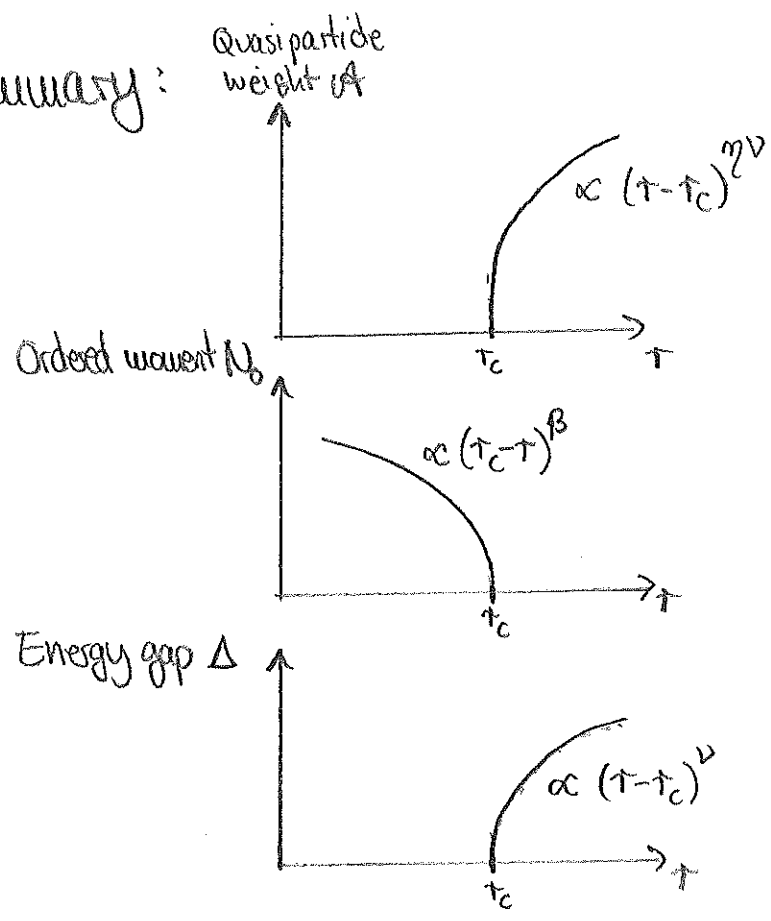 Quasiparticle
ummary: weight A
∝ (r-r_c)^{ην}
r_c r
Ordered moment N_0
∝ (r_c-r)^β
r_c r
Energy gap Δ
∝ (r-r_c)^ν
r_c r